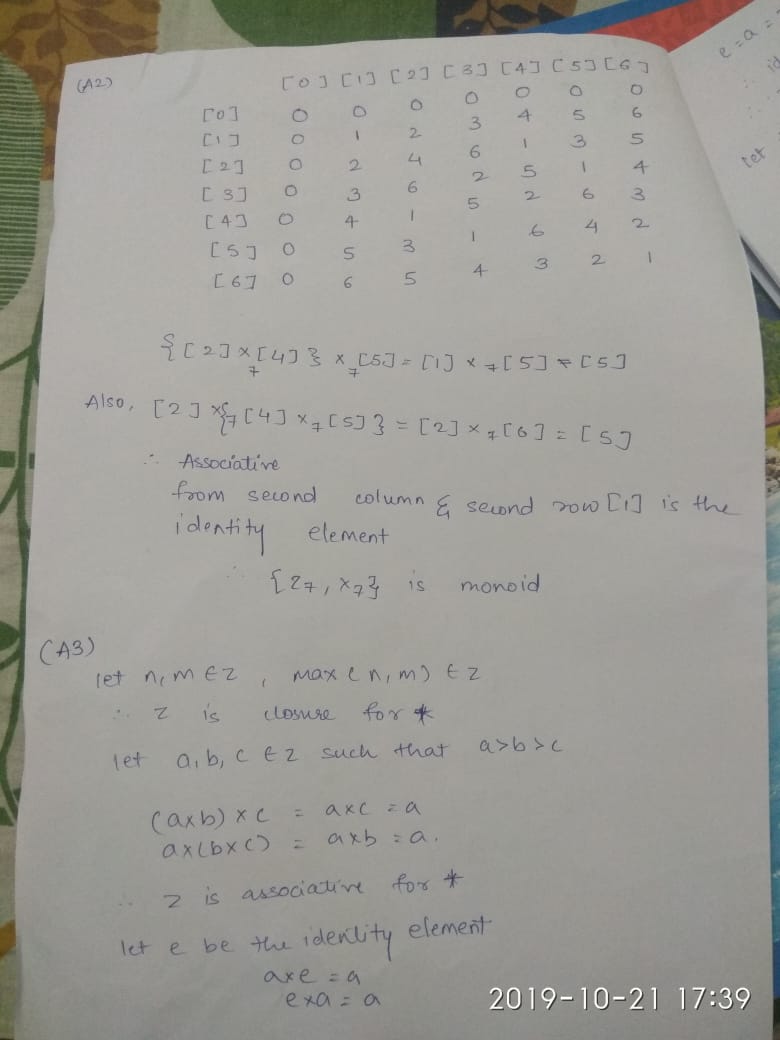 (A2)
[0] [1] [2] [3] [4] [5] [6]
[0] 0 0 0 0 0 0 0
[1] 0 1 2 3 4 5 6
[2] 0 2 4 6 1 3 5
[3] 0 3 6 2 5 1 4
[4] 0 4 1 5 2 6 3
[5] 0 5 3 1 6 4 2
[6] 0 6 5 4 3 2 1
{[2] ×₇ [4]} ×₇ [5] = [1] ×₇ [5] = [5]
Also, [2] ×₇ {[4] ×₇ [5]} = [2] ×₇ [6] = [5]
∴ Associative
from second column & second row [1] is the
identity element
∴ {Z₇, ×₇} is monoid
(A3)
let n, m ∈ z , max (n, m) ∈ z
∴ z is closure for *
let a, b, c ∈ z such that a>b>c
(a×b) × c = a×c = a
a×(b×c) = a×b = a.
∴ z is associative for *
let e be the identity element
a×e = a
e×a = a
2019-10-21 17:39
e = a =
let